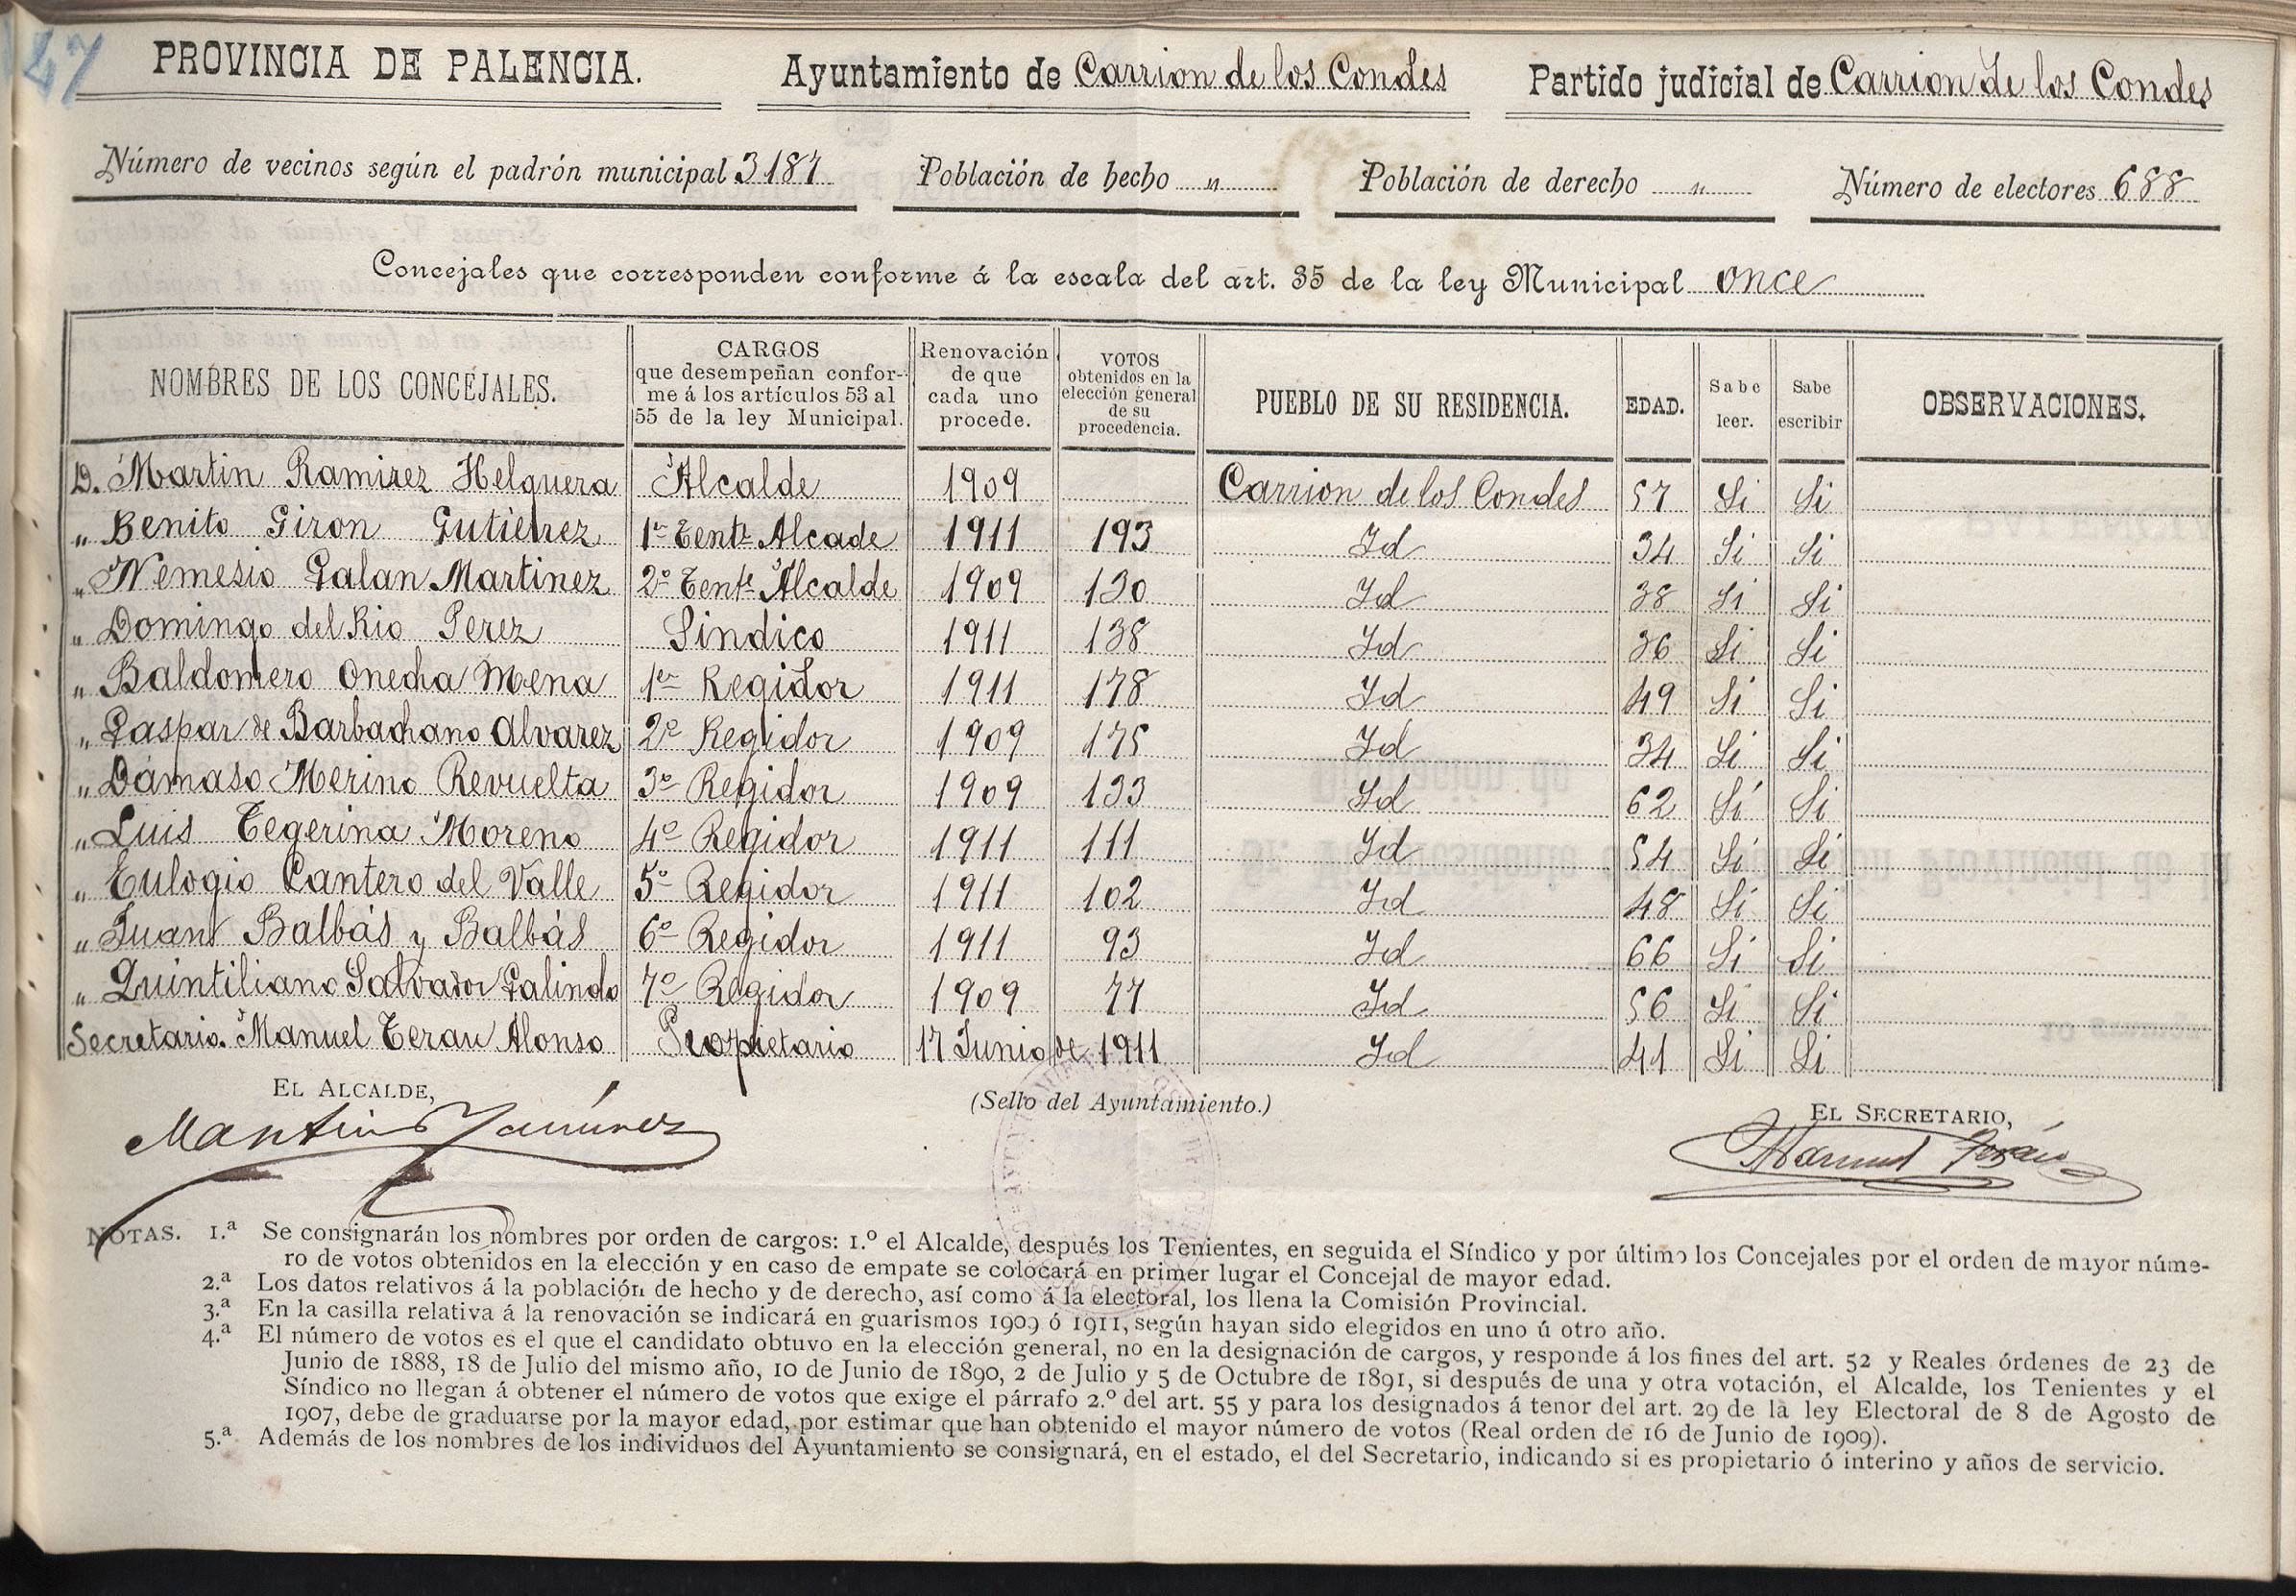 47
PROVINCIA DE PALENCIA. Ayuntamiento de Carrion de los Condes Partido judicial de Carrion de los Condes
Número de vecinos según el padrón municipal 3187 Población de hecho " Población de derecho " Número de electores 688
Concejales que corresponden conforme á la escala del art. 35 de la ley Municipal once
NOMBRES DE LOS CONCEJALES.
CARGOS
que desempeñan confor-
me á los artículos 53 al
55 de la ley Municipal.
Renovación
de que
cada uno
procede.
VOTOS
obtenidos en la
elección general
de su
procedencia.
PUEBLO DE SU RESIDENCIA.
EDAD.
Sabe
leer.
Sabe
escribir
OBSERVACIONES.
D. Martin Ramirez Helguera Alcalde 1909 Carrion de los Condes 57 Si Si
" Benito Giron Gutierrez 1er Tente Alcade 1911 193 Id 34 Si Si
" Nemesio Galan Martinez 2º Tente Alcalde 1909 130 Id 38 Si Si
" Domingo del Rio Perez Sindico 1911 138 Id 36 Si Si
" Baldomero Onecha Mena 1er Regidor 1911 178 Id 49 Si Si
" Gaspar de Barbachano Alvarez 2º Regidor 1909 175 Id 34 Si Si
" Dámaso Merino Revuelta 3º Regidor 1909 133 Id 62 Si Si
" Luis Tegerina Moreno 4º Regidor 1911 111 Id 54 Si Si
" Eulogio Cantero del Valle 5º Regidor 1911 102 Id 48 Si Si
" Juan Balbás y Balbás 6º Regidor 1911 93 Id 66 Si Si
" Quintiliano Salvador Galindo 7º Regidor 1909 77 Id 56 Si Si
Secretario. Manuel Teran Alonso Propietario 17 Junio de 1911 Id 41 Si Si
EL ALCALDE,
(Sello del Ayuntamiento.)
EL SECRETARIO,
Martin Ramirez
Manuel Terán
NOTAS. 1.ª Se consignarán los nombres por orden de cargos: 1.º el Alcalde, después los Tenientes, en seguida el Síndico y por último los Concejales por el orden de mayor núme-
ro de votos obtenidos en la elección y en caso de empate se colocará en primer lugar el Concejal de mayor edad.
2.ª Los datos relativos á la población de hecho y de derecho, así como á la electoral, los llena la Comisión Provincial.
3.ª En la casilla relativa á la renovación se indicará en guarismos 1909 ó 1911, según hayan sido elegidos en uno ú otro año.
4.ª El número de votos es el que el candidato obtuvo en la elección general, no en la designación de cargos, y responde á los fines del art. 52 y Reales órdenes de 23 de
Junio de 1888, 18 de Julio del mismo año, 10 de Junio de 1890, 2 de Julio y 5 de Octubre de 1891, si después de una y otra votación, el Alcalde, los Tenientes y el
Síndico no llegan á obtener el número de votos que exige el párrafo 2.º del art. 55 y para los designados á tenor del art. 29 de la ley Electoral de 8 de Agosto de
1907, debe de graduarse por la mayor edad, por estimar que han obtenido el mayor número de votos (Real orden de 16 de Junio de 1909).
5.ª Además de los nombres de los individuos del Ayuntamiento se consignará, en el estado, el del Secretario, indicando si es propietario ó interino y años de servicio.